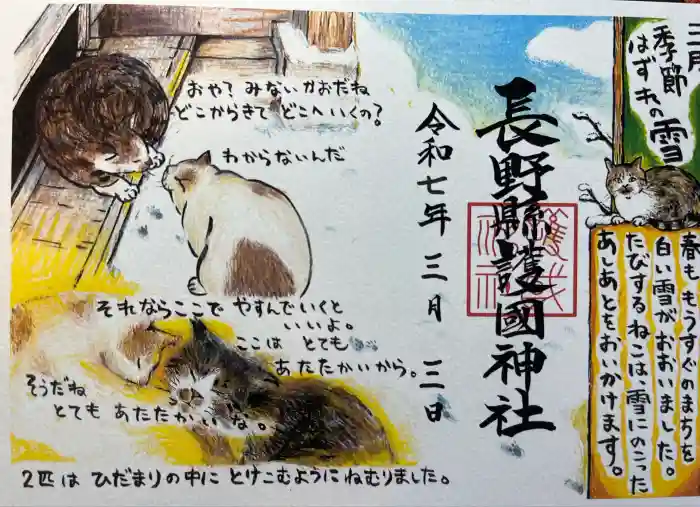 三月
季節
はずれの雪
春ももうすぐのまちを
白い雪がおおいました。
たびするねこは、雪にのこった
あしあとをおいかけます。
長野縣護國神社
令和七年三月三日
おや？みないかおだね
どこからきて どこへいくの？
わからないんだ
それならここで やすんでいくと
いいよ。
ここは とても
あたたかいから。
そうだね
とても あたたかいな。
2匹は ひだまりの中に とけこむようにねむりました。